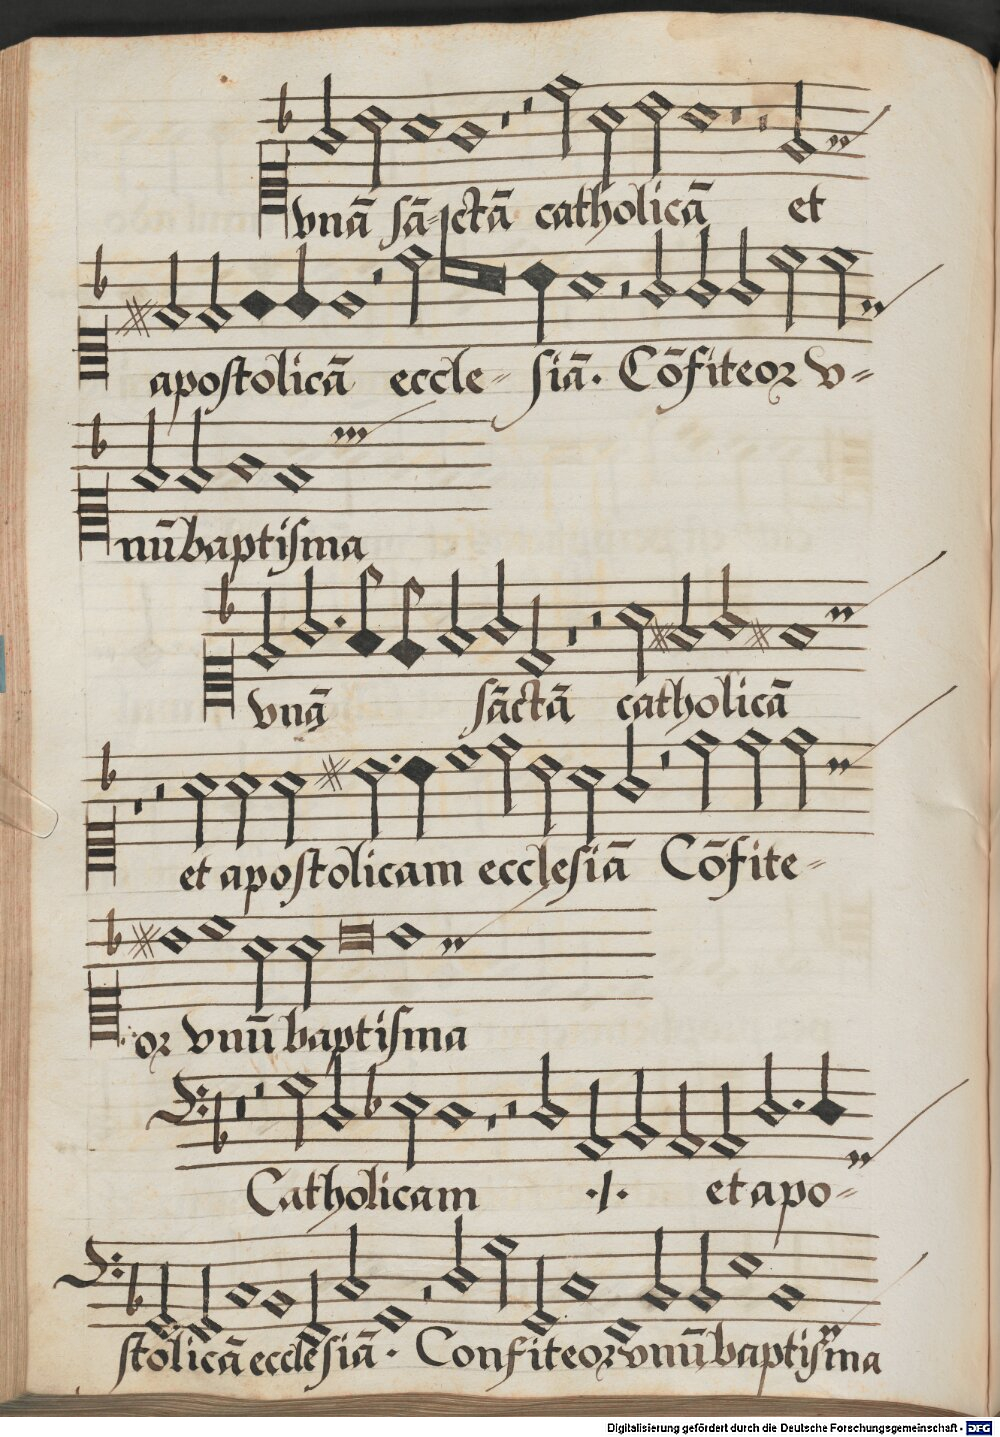 vnā sā-ctā catholicā et
apostolicā eccle- siā. Cōfiteor v-
nū baptisma
vnā sāctā catholicā
et apostolicam ecclesiā Cōfite-
or vnū baptisma
Catholicam ./. et apo-
stolicā ecclesiā. Confiteor vnū baptisma
Digitalisierung gefördert durch die Deutsche Forschungsgemeinschaft - DFG